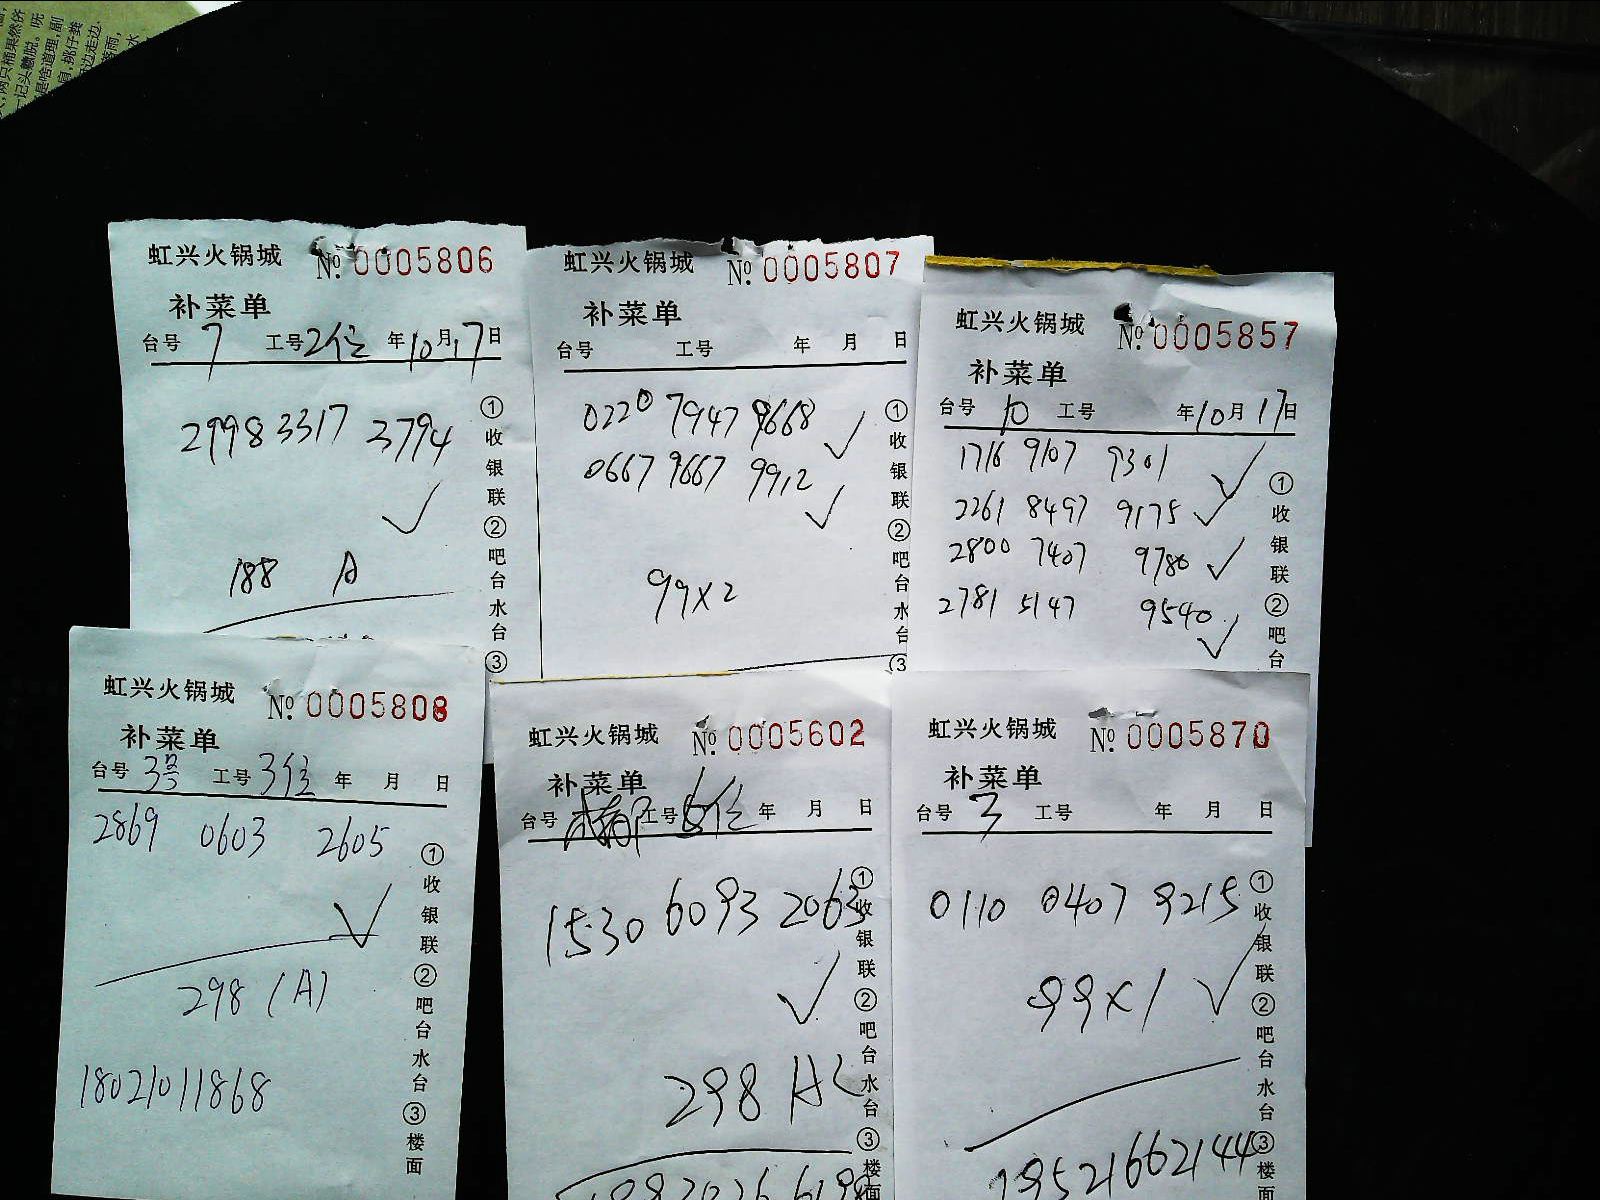 虹兴火锅城 № 0005806
补菜单
台号 7 工号 2位 年 10 月 17 日
2998 3317 3794
188 A
①收银联②吧台水台③
虹兴火锅城 № 0005807
补菜单
台号 工号 年 月 日
0220 7947 9668
0667 9667 9912
99x2
①收银联②吧台水台③
虹兴火锅城 № 0005857
补菜单
台号 10 工号 年 10 月 17 日
1716 9107 9301
2261 8497 9175
2800 7407 9780
2781 5147 9540
①收银联②吧台
虹兴火锅城 № 0005808
补菜单
台号 3号 工号 3位 年 月 日
2869 0603 2605
298 (A)
18021011868
①收银联②吧台水台③楼面
虹兴火锅城 № 0005602
补菜单
台号 工号 位 年 月 日
1530 6093 2063
298 A
①收银联②吧台水台③楼面
虹兴火锅城 № 0005870
补菜单
台号 3 工号 年 月 日
0110 0407 9215
99x1
19521662144
①收银联②吧台水台③楼面